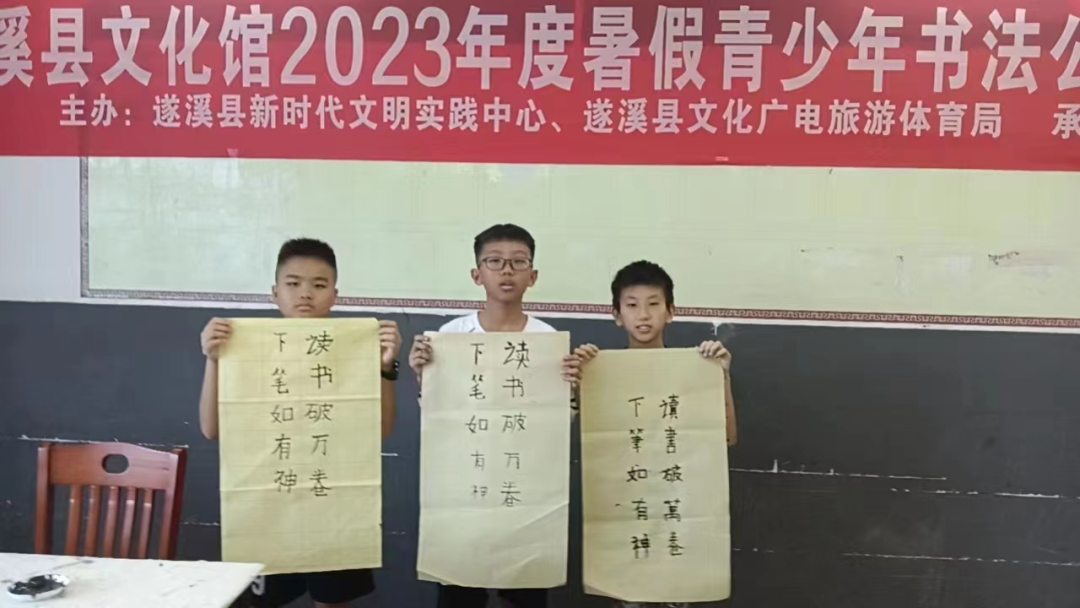 溪县文化馆2023年度暑假青少年书法公
主办：遂溪县新时代文明实践中心、遂溪县文化广电旅游体育局 承
读书破万卷
下笔如有神
读书破万卷
下笔如有神
讀書破萬卷
下筆如有神